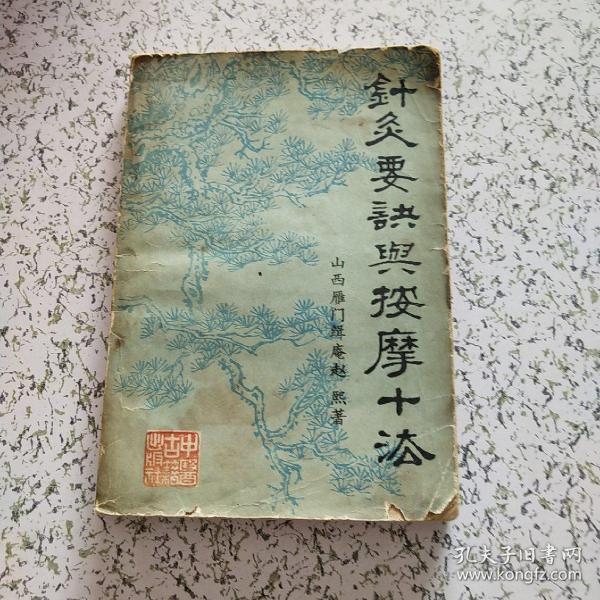 針灸要訣與按摩十法
山西雁门缉庵赵熙著
中醫古籍出版社
孔夫子旧书网
www.kongfz.com